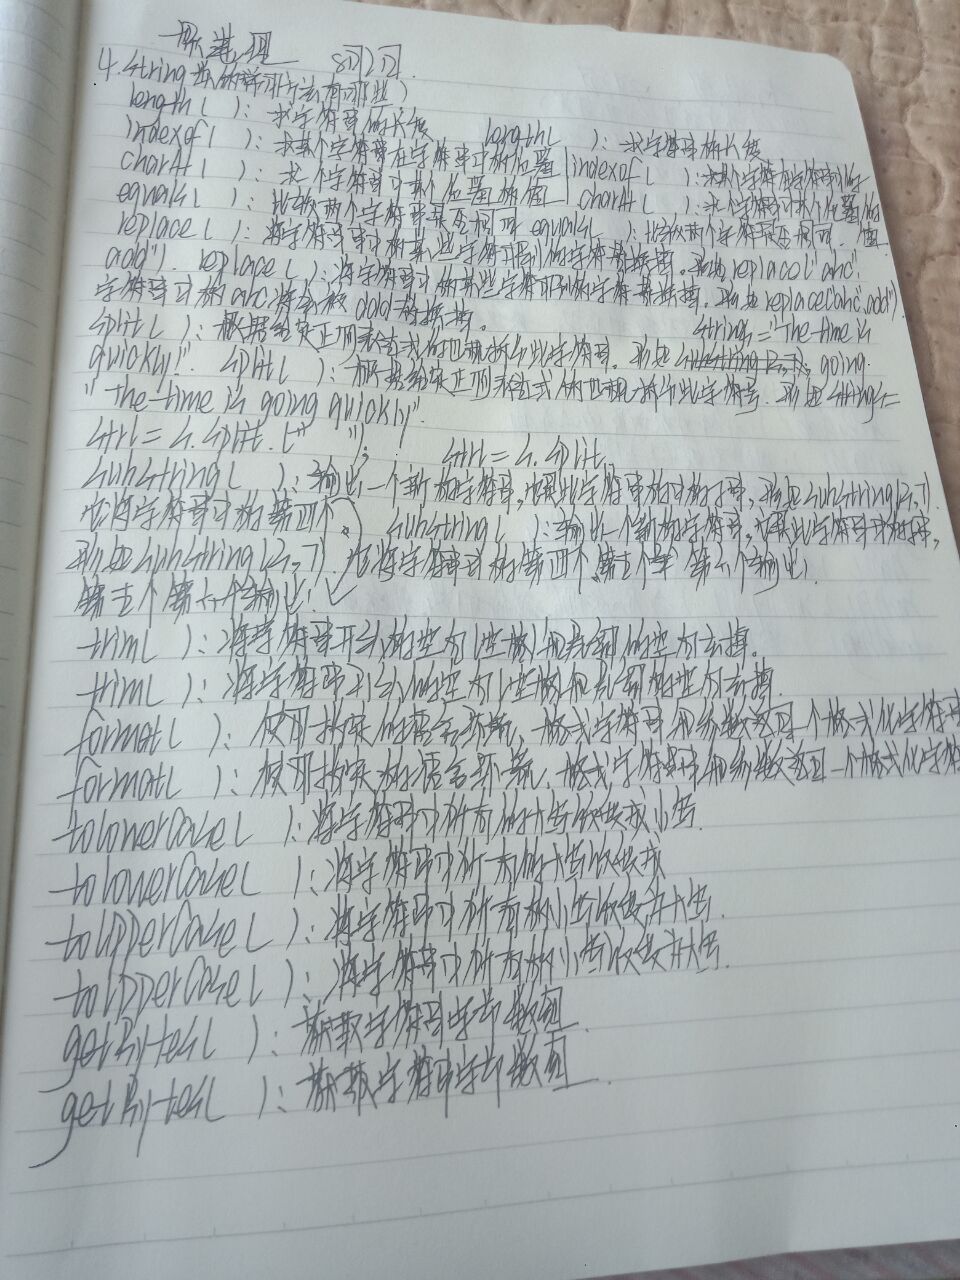 8月2日
4.String类的常用方法有哪些?
length( ): 求字符串的长度 length( ): 求字符串的长度
indexof( ): 求某个字符串在字符串中的位置 indexof( ): 求某个字符在字符串中的
charAt( ): 求一个字符串中某个位置的值 charAt( ): 求一个字符串中某个位置的值
equals( ): 比较两个字符串是否相同 equals( ): 比较两个字符串是否相同.
replace( ): 将字符串中的某些字符用别的字符替换掉。形如replace("abc",
"ddd"). replace( ): 将字符串中的某些字符用别的字符替换掉。形如replace("abc","ddd")
字符串中的abc将会被ddd替换掉。
split( ): 根据给定正则表达式的匹配拆分此字符串。形如 String s="The time is going
quickly!". split( ): 根据给定正则表达式的匹配拆分此字符串. 形如String s=
"The time is going quickly".
str1=s.split(" "); str1=s.split
substring( ): 输出一个新的字符串,它是此字符串的中的子串,形如substring(2,7)
也将字符串中的第四个、 substring( ): 输出一个新的字符串,它是此字符串中的子串,
形如substring(2,7). 也将字符串中的第四个、第五个 第六个输出.
第五个第六个输出.
trim( ): 将字符串开头的空白(空格)和尾部的空白去掉。
trim( ): 将字符串开头的空白(空格)和尾部的空白去掉.
format( ): 使用指定的语言环境,格式字符串和参数返回一个格式化字符串
format( ): 使用指定的语言环境,格式字符串和参数返回一个格式化字符
toLowerCase( ): 将字符串中所有的大写改变成小写.
toLowerCase( ): 将字符串中所有的大写改变成
toUpperCase( ): 将字符串中所有的小写改变为大写.
toUpperCase( ): 将字符串中所有的小写改变为大写.
getBytes( ): 获取字符串字节数组.
getBytes( ): 获取字符串字节数组.